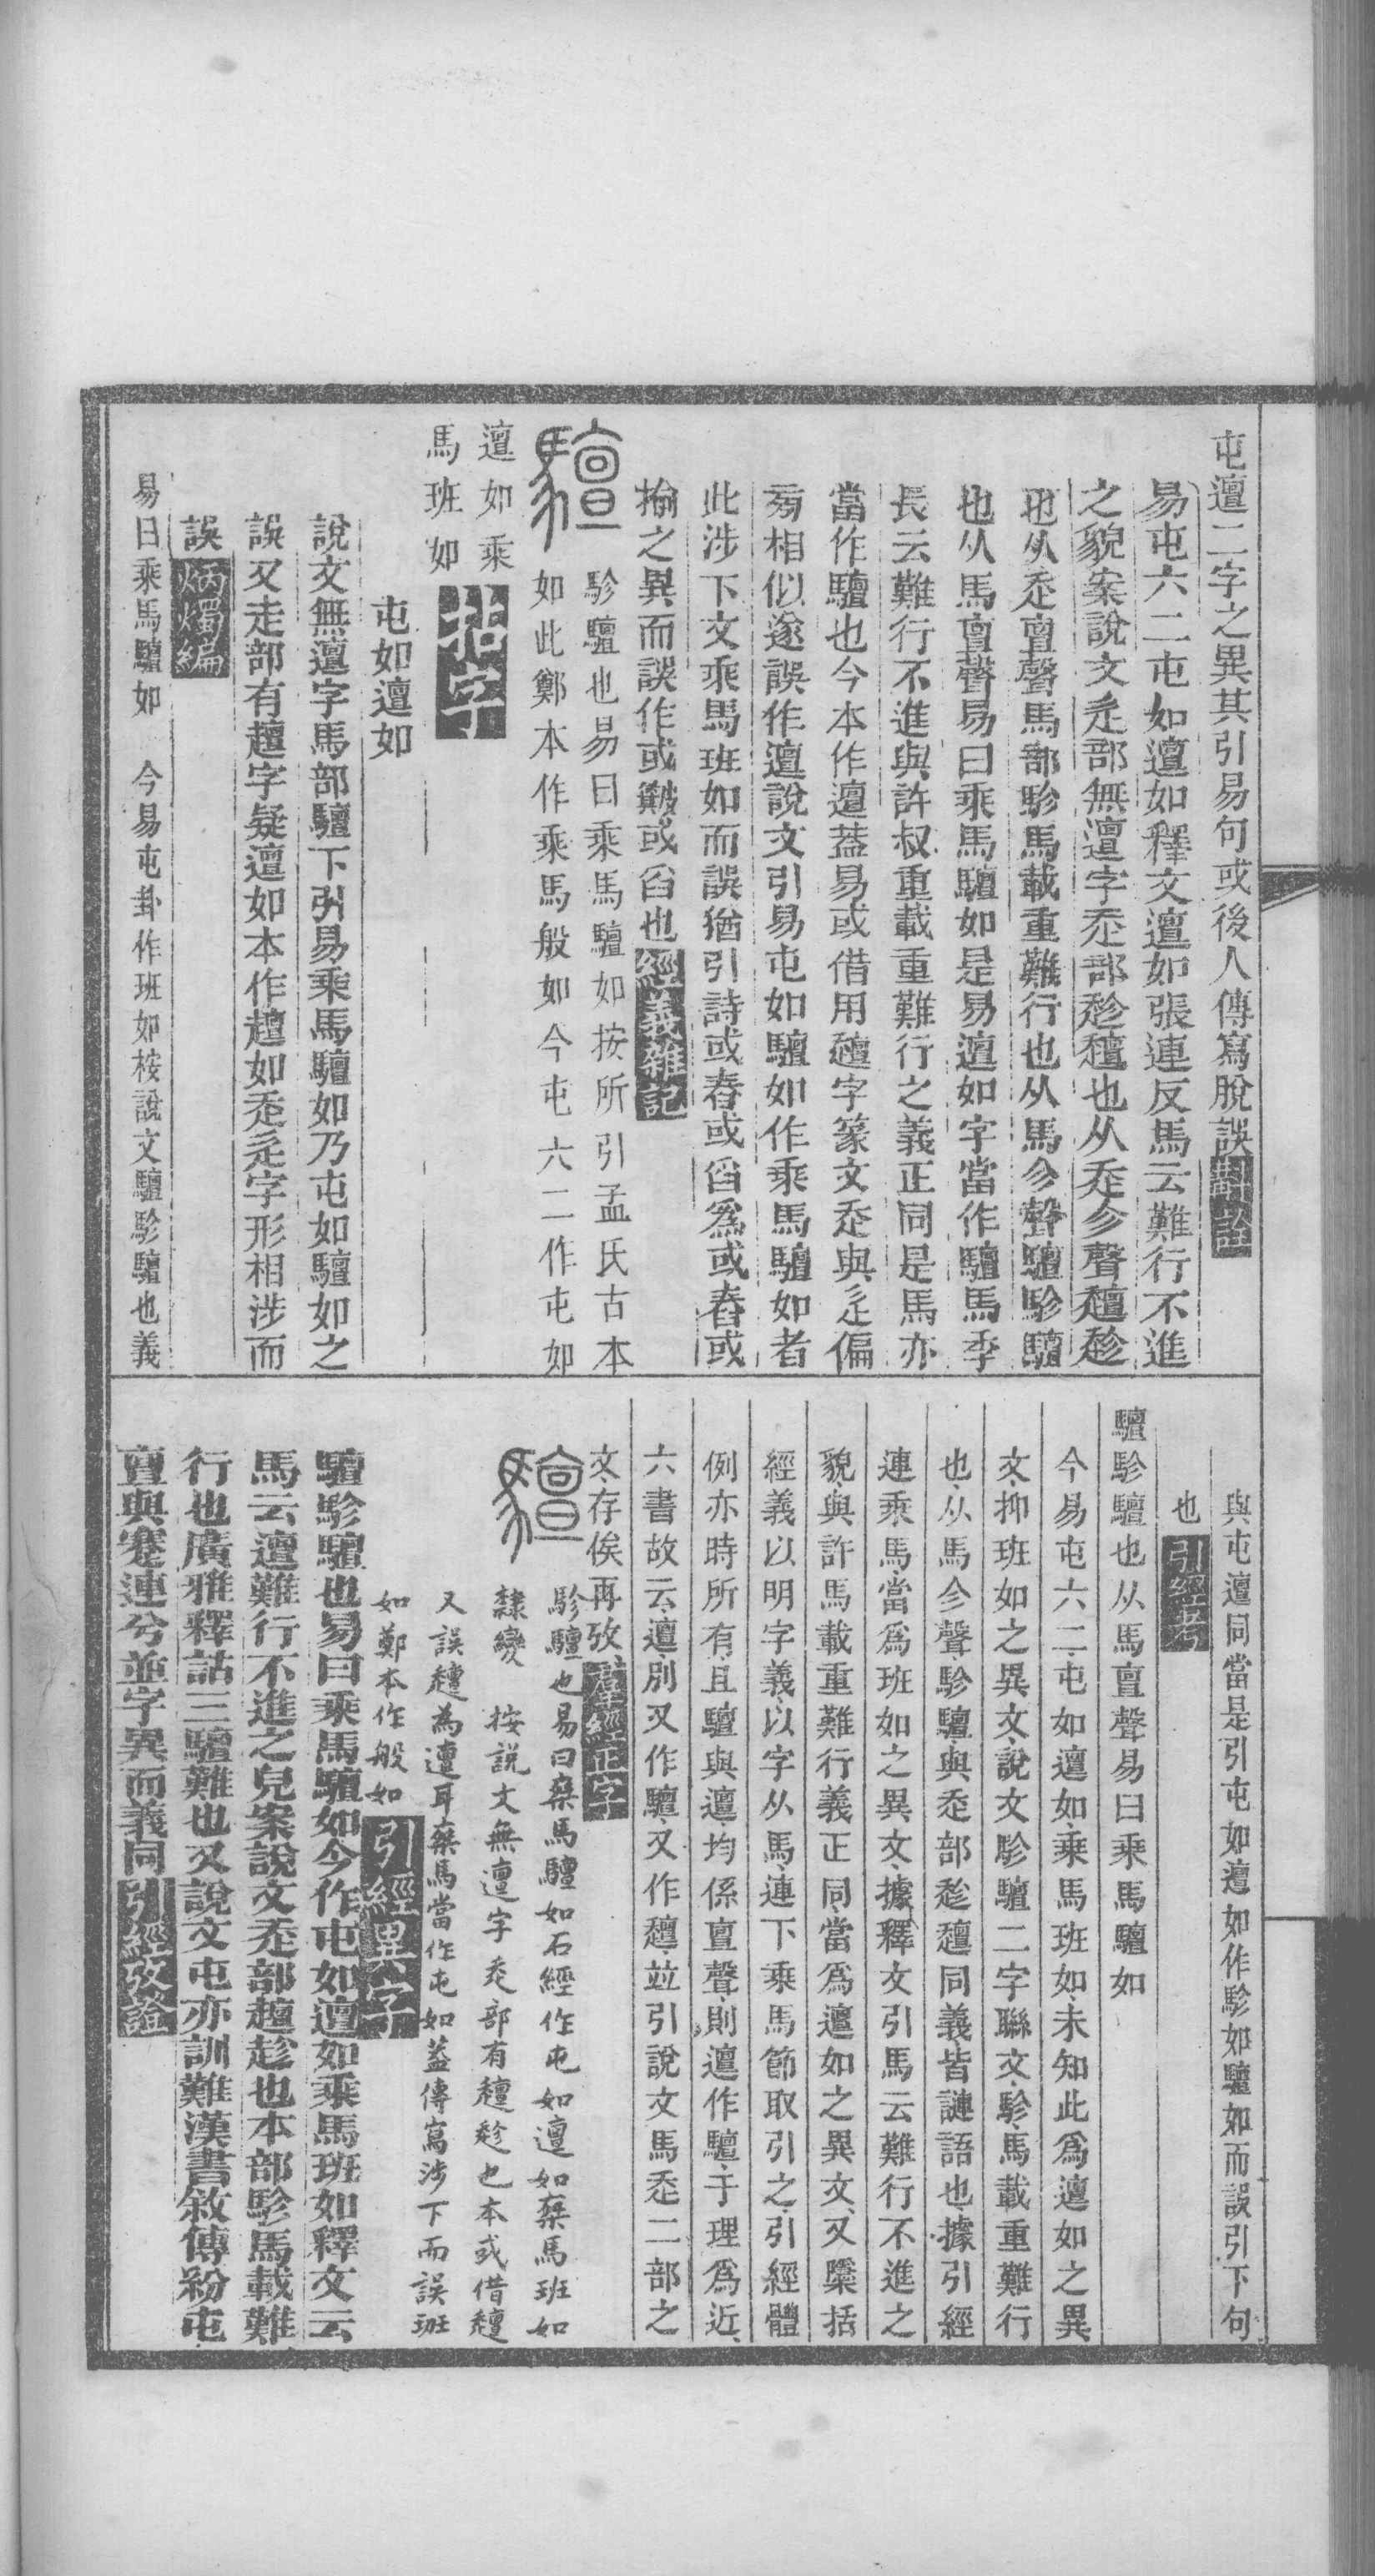 屯邅二字之異其引易句或後人傳寫脫誤斠詮
易屯六二屯如邅如釋文邅如張連反馬云難行不進
之貌案說文辵部無邅字走部趁䞣也从走㐱聲䞣趁
也从走亶聲馬部駗馬載重難行也从馬㐱聲驙駗驙
也从馬亶聲易曰乘馬驙如是易邅如字當作驙馬季
長云難行不進與許叔重載重難行之義正同是馬亦
當作驙也今本作邅葢易或借用䞣字篆文走與辵偏
旁相似遂誤作邅說文引易屯如驙如作乘馬驙如者
此涉下文乘馬班如而誤猶引詩或舂或舀爲或舂或
揄之異而誤作或簸或舀也經義雜記
驙
駗驙也易曰乘馬驙如按所引孟氏古本
如此鄭本作乘馬般如今屯六二作屯如
邅如乘
馬班如拈字
屯如邅如
說文無邅字馬部驙下引易乘馬驙如乃屯如驙如之
誤又走部有䞣字疑邅如本作䞣如走辵字形相涉而
誤炳燭編
易曰乘馬驙如　今易屯卦作班如桉說文驙駗驙也義
與屯邅同當是引屯如邅如作駗如驙如而誤引下句
也引經考
驙駗驙也从馬亶聲易曰乘馬驙如
今易屯六二屯如邅如乘馬班如未知此爲邅如之異
文抑班如之異文說文駗驙二字聯文駗馬載重難行
也从馬㐱聲駗驙與走部趁䞣同義皆謰語也據引經
連乘馬當爲班如之異文據釋文引馬云難行不進之
貌與許馬載重難行義正同當爲邅如之異文又檃括
經義以明字義以字从馬連下乘馬節取引之引經體
例亦時所有且驙與邅均係亶聲則邅作驙于理爲近
六書故云邅別又作驙又作䞣竝引說文馬走二部之
文存俟再攷羣經正字
驙
駗驙也易曰椉馬驙如石經作屯如邅如椉馬班如
隸變　按說文無邅字走部有䞣趁也本或借䞣
又誤䞣為邅耳椉馬當作屯如葢傳寫涉下而誤班
如鄭本作般如引經異字
驙駗驙也易曰乘馬驙如今作屯如邅如乘馬班如釋文云
馬云邅難行不進之皃案說文走部䞣趁也本部駗馬載難
行也廣雅釋詁三驙難也又說文屯亦訓難漢書敘傳紛屯
亶與蹇連兮並字異而義同引經攷證